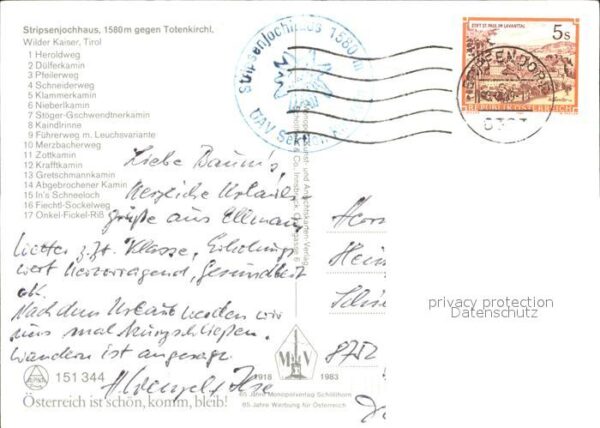 Stripsenjochhaus, 1580m gegen Totenkirchl,
Wilder Kaiser, Tirol
1 Heroldweg
2 Dülferkamin
3 Pfeilerweg
4 Schneiderweg
5 Klammerkamin
6 Nieberlkamin
7 Stöger-Gschwendtnerkamin
8 Kaindlrinne
9 Führerweg m. Leuchsvariante
10 Merzbacherweg
11 Zottkamin
12 Krafftkamin
13 Gretschmannkamin
14 Abgebrochener Kamin
15 In's Schneeloch
16 Fiechtl-Sockelweg
17 Onkel-Fickel-Riß
Stripsenjochhaus 1580 m
ÖAV Sektion
STIFT ST. PAUL IM LAVANTTAL
5s
REPUBLIK ÖSTERREICH
Liebe Baum's,
Herzliche Urlaubs-
grüße aus Ellmau
Wetter z.Zt. Klasse, Erholungs
wert hervorragend, Gesundheit
ok.
Nach dem Urlaub werden wir
uns mal kurzschließen.
Wandern ist angesagt.
Ilse
8752
privacy protection
Datenschutz
M V
1918 1983
65 Jahre Monopolverlag Schöllhorn
65 Jahre Werbung für Österreich
151 344
Österreich ist schön, komm, bleib!